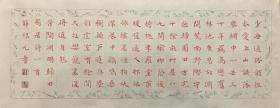 少無適俗韻性
本愛丘山誤落
塵網中一去三
十年羈鳥戀舊
林池魚思故淵
開荒南野際守
拙歸園田方宅
十餘畝草屋八
九間榆柳蔭後
簷桃李羅堂前
曖曖遠人村依
依墟里煙狗吠
深巷中雞鳴桑
樹顛戶庭無塵
雜虛室有餘閒
久在樊籠裏復
得返自然
陶淵明歸田
居詩一首